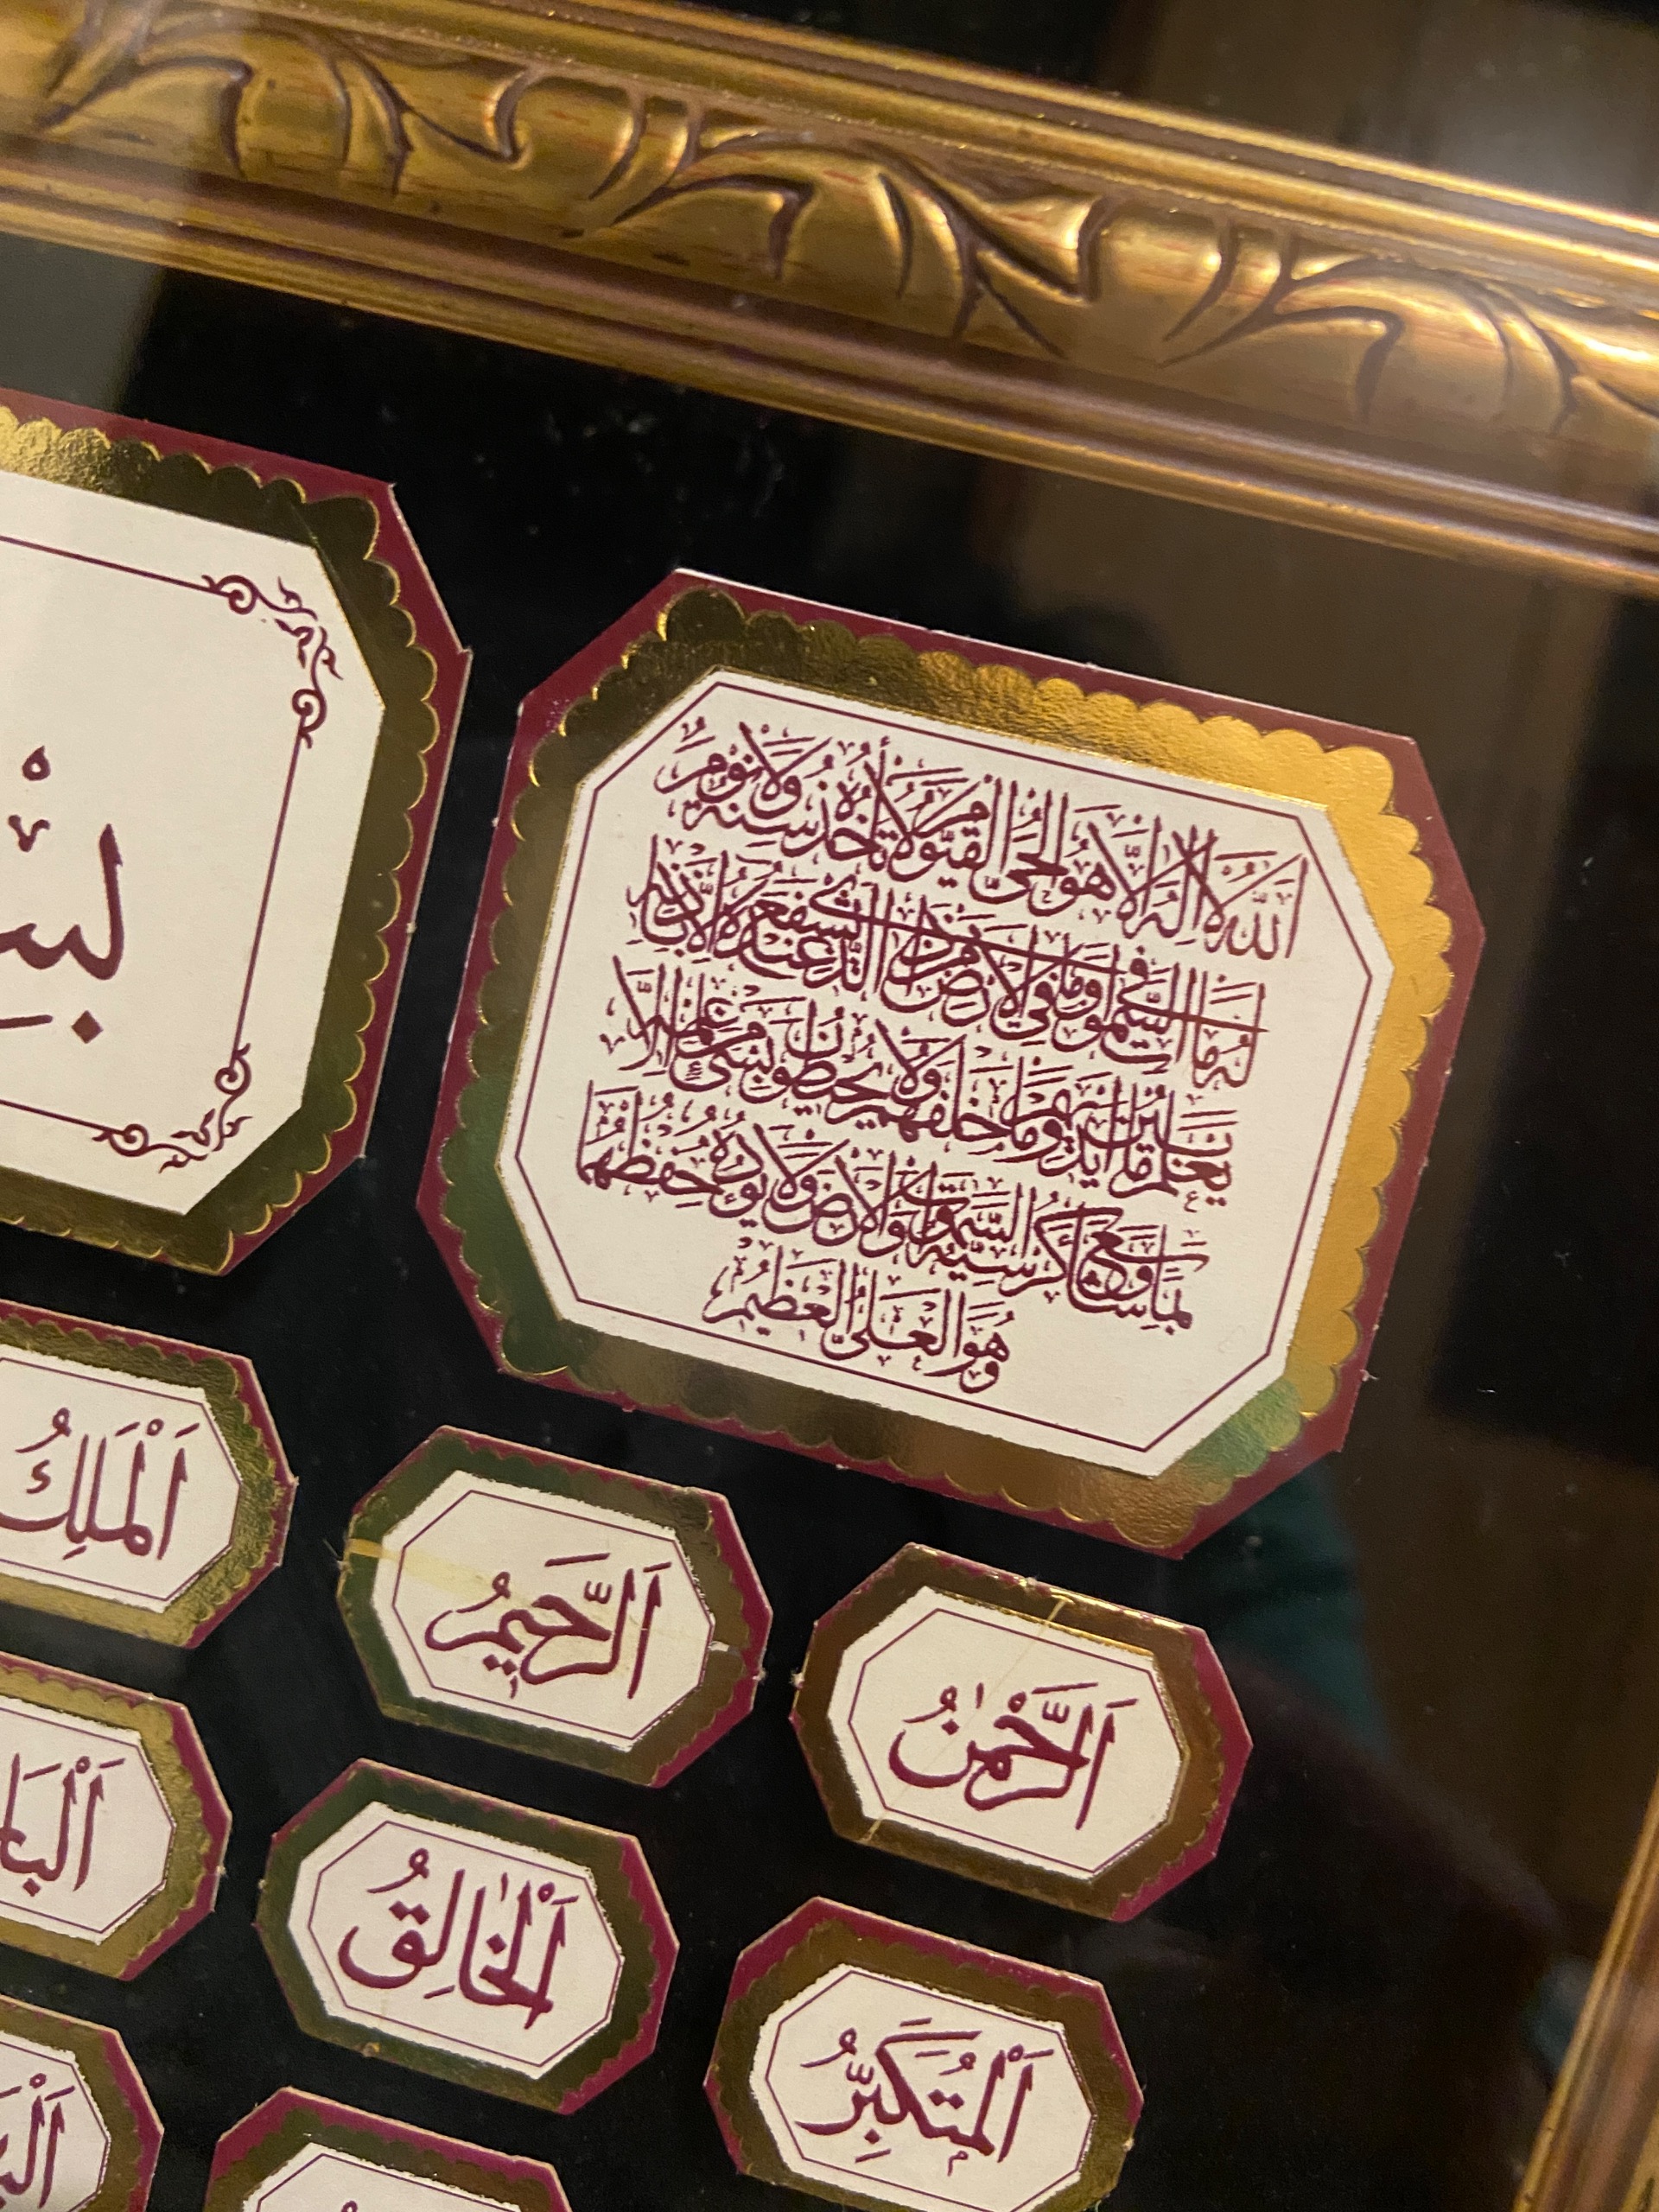 الله لا اله الا هو الحي القيوم لا تأخذه سنة ولا نوم
له ما في السموات وما في الارض من ذا الذي يشفع عنده الا باذنه
يعلم ما بين ايديهم وما خلفهم ولا يحيطون بشيء من علمه الا
بما شاء وسع كرسيه السموات والارض ولا يؤده حفظهما
وهو العلي العظيم
اَلرَّحْمٰنُ
اَلرَّحِيمُ
اَلْمَلِكُ
اَلْمُتَكَبِّرُ
اَلْخَالِقُ